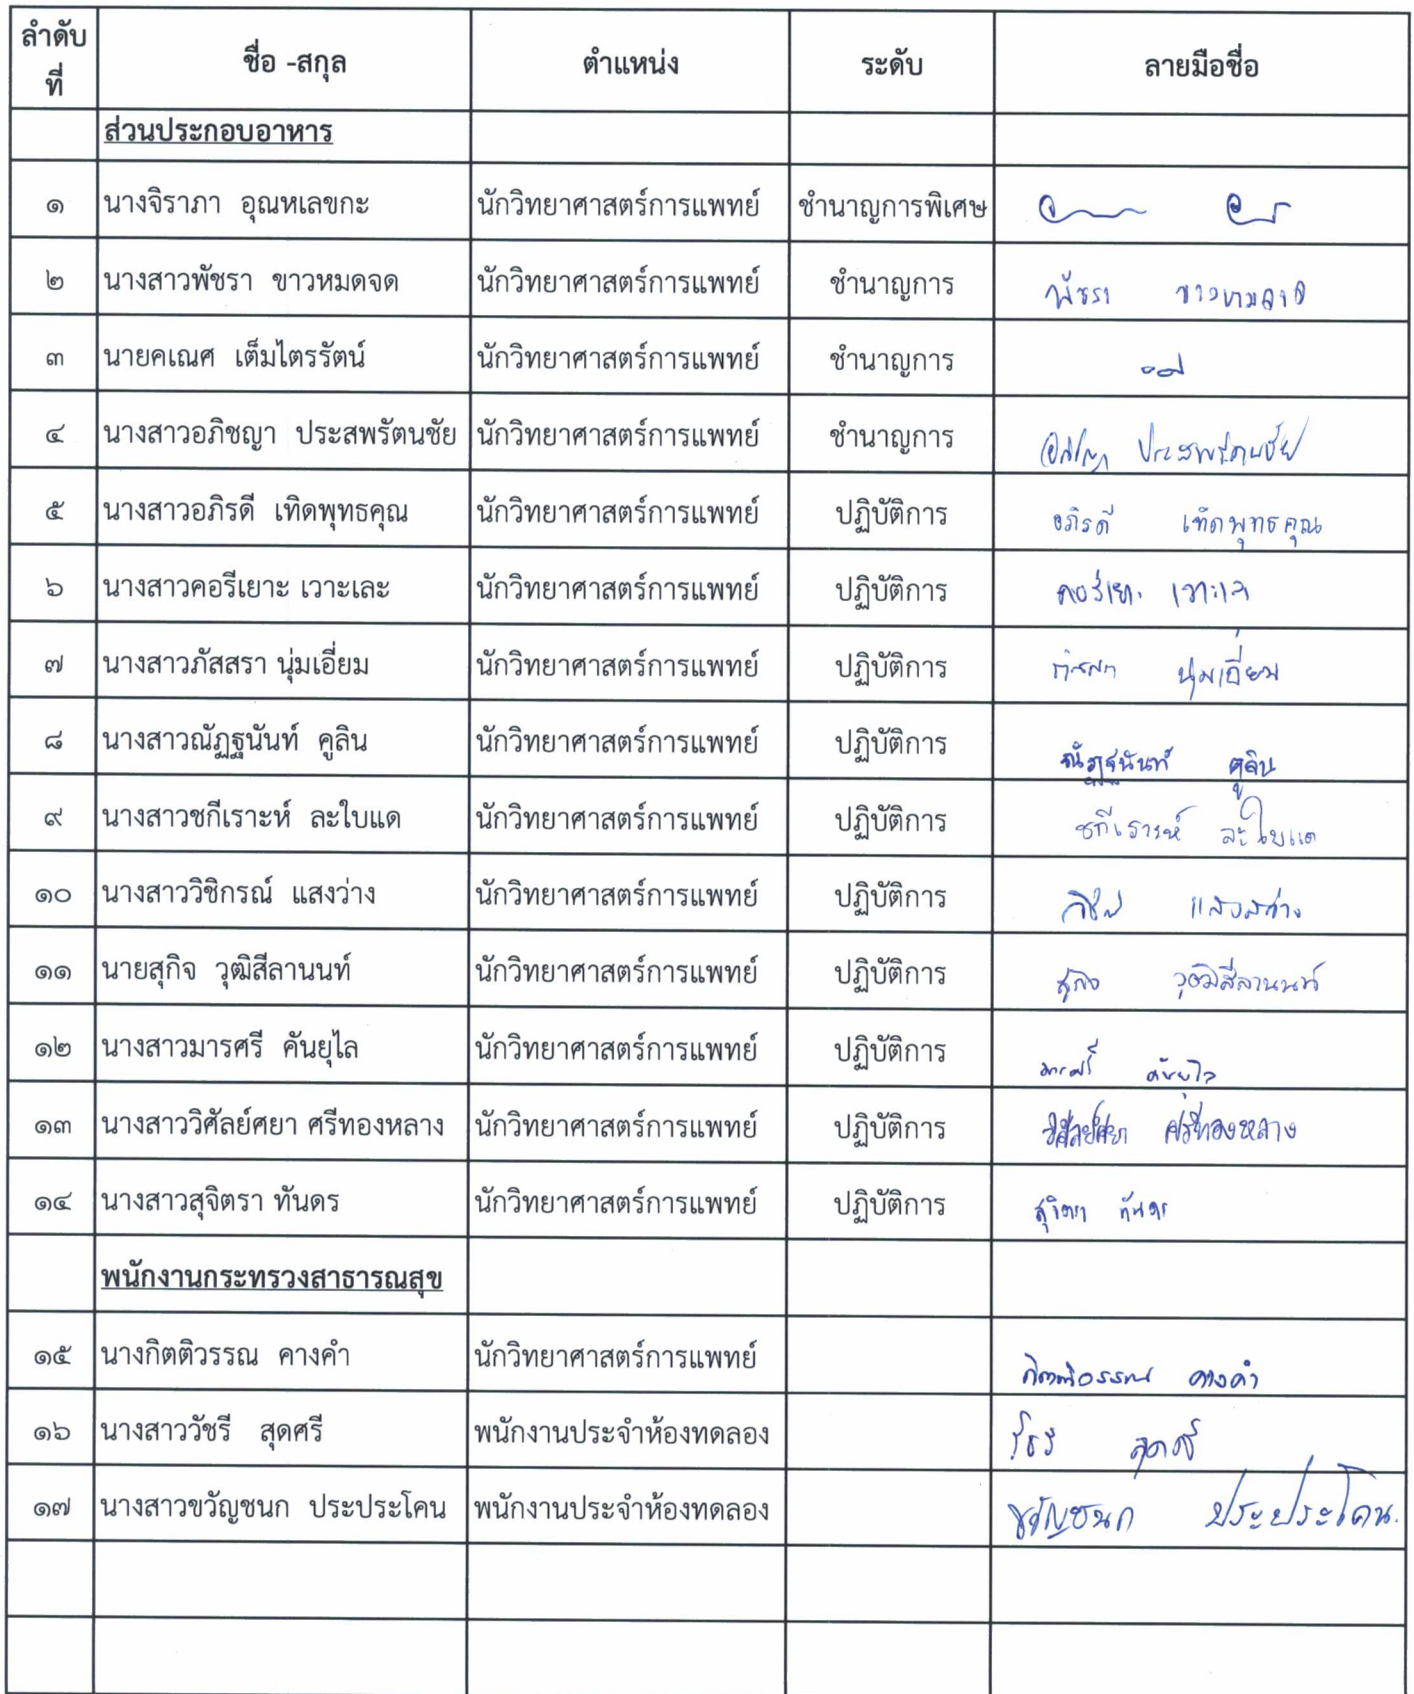 ลำดับ
ที่ ชื่อ -สกุล ตำแหน่ง ระดับ ลายมือชื่อ
ส่วนประกอบอาหาร
๑ นางจิราภา อุณหเลขกะ นักวิทยาศาสตร์การแพทย์ ชำนาญการพิเศษ
๒ นางสาวพัชรา ขาวหมดจด นักวิทยาศาสตร์การแพทย์ ชำนาญการ พัชรา ขาวหมดจด
๓ นายคเณศ เต็มไตรรัตน์ นักวิทยาศาสตร์การแพทย์ ชำนาญการ
๔ นางสาวอภิชญา ประสพรัตนชัย นักวิทยาศาสตร์การแพทย์ ชำนาญการ อภิชญา ประสพรัตนชัย
๕ นางสาวอภิรดี เทิดพุทธคุณ นักวิทยาศาสตร์การแพทย์ ปฏิบัติการ อภิรดี เทิดพุทธคุณ
๖ นางสาวคอรีเยาะ เวาะเละ นักวิทยาศาสตร์การแพทย์ ปฏิบัติการ
๗ นางสาวภัสสรา นุ่มเอี่ยม นักวิทยาศาสตร์การแพทย์ ปฏิบัติการ นุ่มเอี่ยม
๘ นางสาวณัฏฐนันท์ คูลิน นักวิทยาศาสตร์การแพทย์ ปฏิบัติการ ณัฏฐนันท์ คูลิน
๙ นางสาวชกีเราะห์ ละใบแด นักวิทยาศาสตร์การแพทย์ ปฏิบัติการ ชกีเราะห์ ละใบแด
๑๐ นางสาววิชิกรณ์ แสงว่าง นักวิทยาศาสตร์การแพทย์ ปฏิบัติการ
๑๑ นายสุกิจ วุฒิสีลานนท์ นักวิทยาศาสตร์การแพทย์ ปฏิบัติการ สุกิจ วุฒิสีลานนท์
๑๒ นางสาวมารศรี คันยุไล นักวิทยาศาสตร์การแพทย์ ปฏิบัติการ มารศรี คันยุไล
๑๓ นางสาววิศัลย์ศยา ศรีทองหลาง นักวิทยาศาสตร์การแพทย์ ปฏิบัติการ วิศัลย์ศยา ศรีทองหลาง
๑๔ นางสาวสุจิตรา ทันดร นักวิทยาศาสตร์การแพทย์ ปฏิบัติการ สุจิตรา ทันดร
พนักงานกระทรวงสาธารณสุข
๑๕ นางกิตติวรรณ คางคำ นักวิทยาศาสตร์การแพทย์ กิตติวรรณ คางคำ
๑๖ นางสาววัชรี สุดศรี พนักงานประจำห้องทดลอง วัชรี สุดศรี
๑๗ นางสาวขวัญชนก ประประโคน พนักงานประจำห้องทดลอง ขวัญชนก ประประโคน